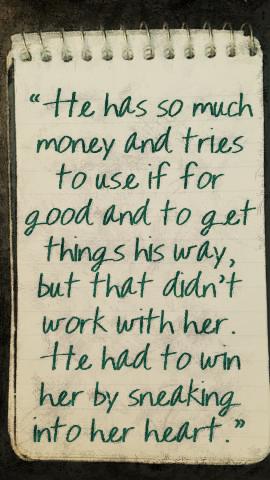 “He has so much
money and tries
to use if for
good and to get
things his way,
but that didn't
work with her.
He had to win
her by sneaking
into her heart.”